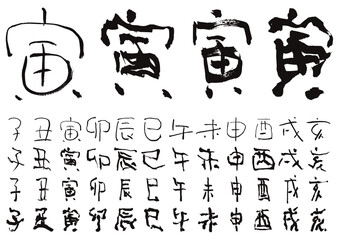 寅寅寅寅
子丑寅卯辰巳午未申酉戌亥
子丑寅卯辰巳午未申酉戌亥
子丑寅卯辰巳午未申酉戌亥
子丑寅卯辰巳午未申酉戌亥